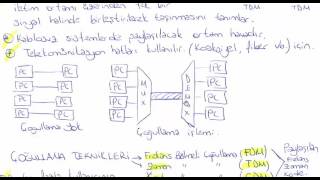 iletim ortamı üzerinden tek bir
sinyal halinde birleştirilerek taşınmasını tanımlar.
TDM
Kablosuz sistemlerde paylaşılacak ortam havadır.
Telekomünikasyon hatları kullanılır. (Koaksiyel, fiber vb) için.
PC PC
PC PC
PC PC
PC PC
MUX
DEMUX
Çoğullama Yok
Çoğullama işlemi.
ÇOĞULLAMA TEKNİKLERİ → Frekans Bölmeli Çoğullama (FDM)
Zaman " " (TDM)
Paylaşılan
Frekans
Zaman